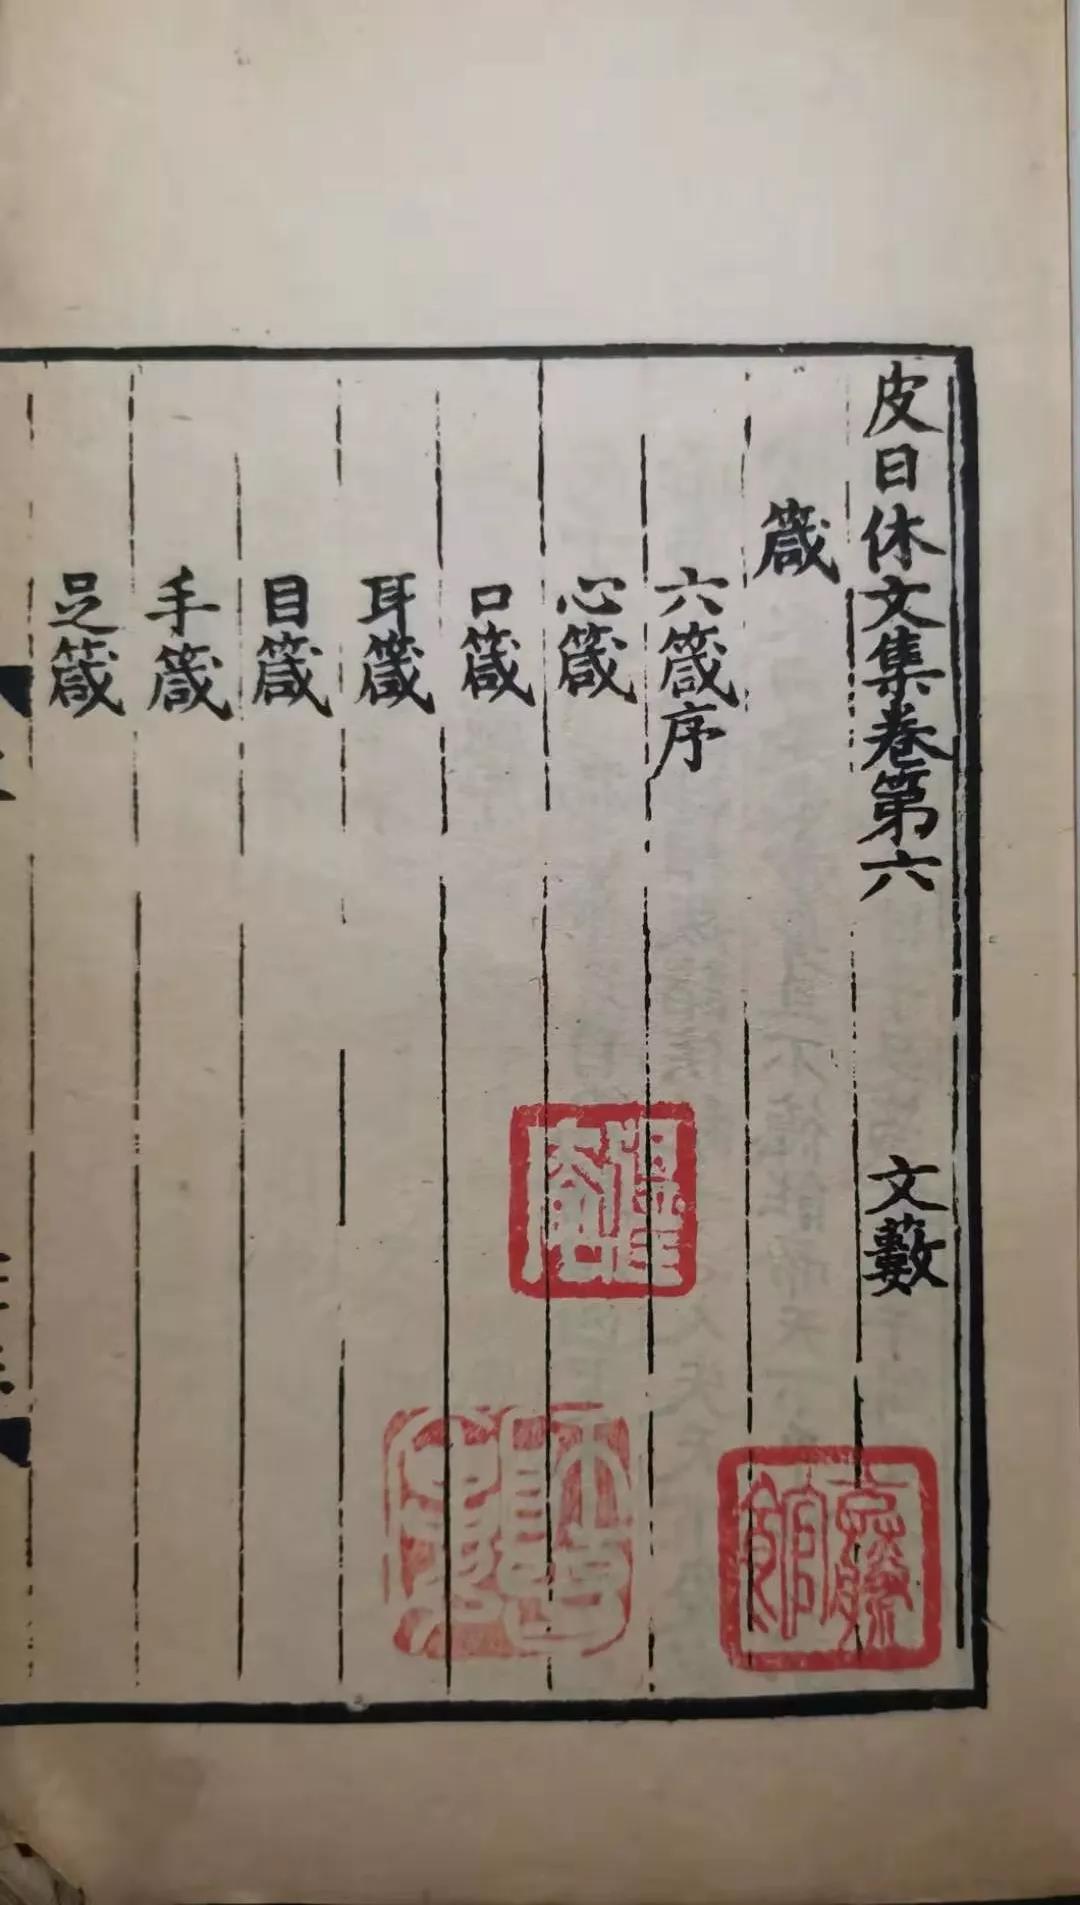 皮日休文集卷第六 文藪
箴
六箴序
心箴
口箴
耳箴
目箴
手箴
足箴